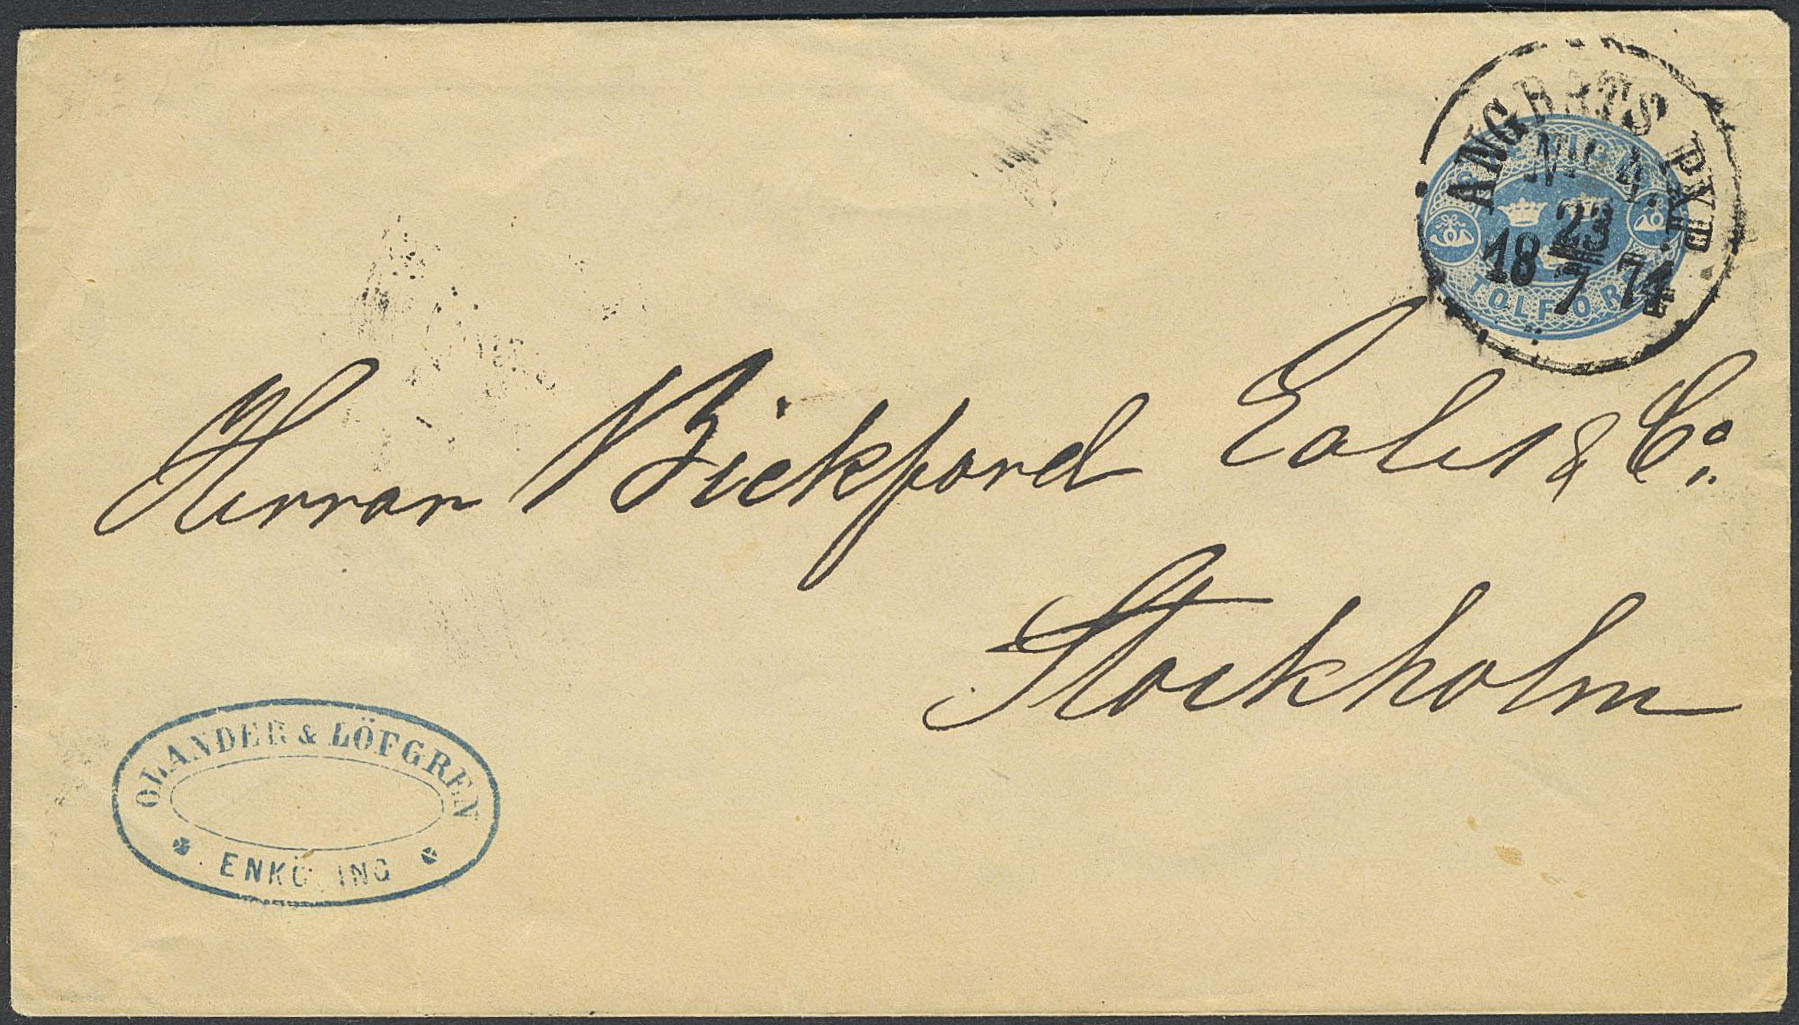 ÅNGBÅTS PXP.
Nr: 4.
SVERIGE
23
18 7 74
TOLF ÖRE
Herrar Bickford Eales & Co.
Stockholm
OLANDER & LÖFGREN
ENKÖPING